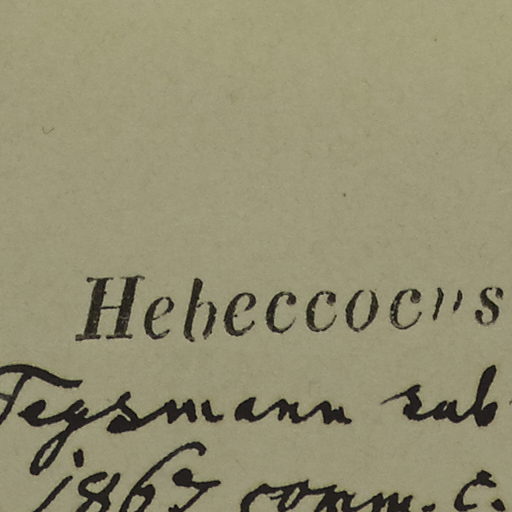 Hebeccocus
Tegsmann sub
1867 comm. c.